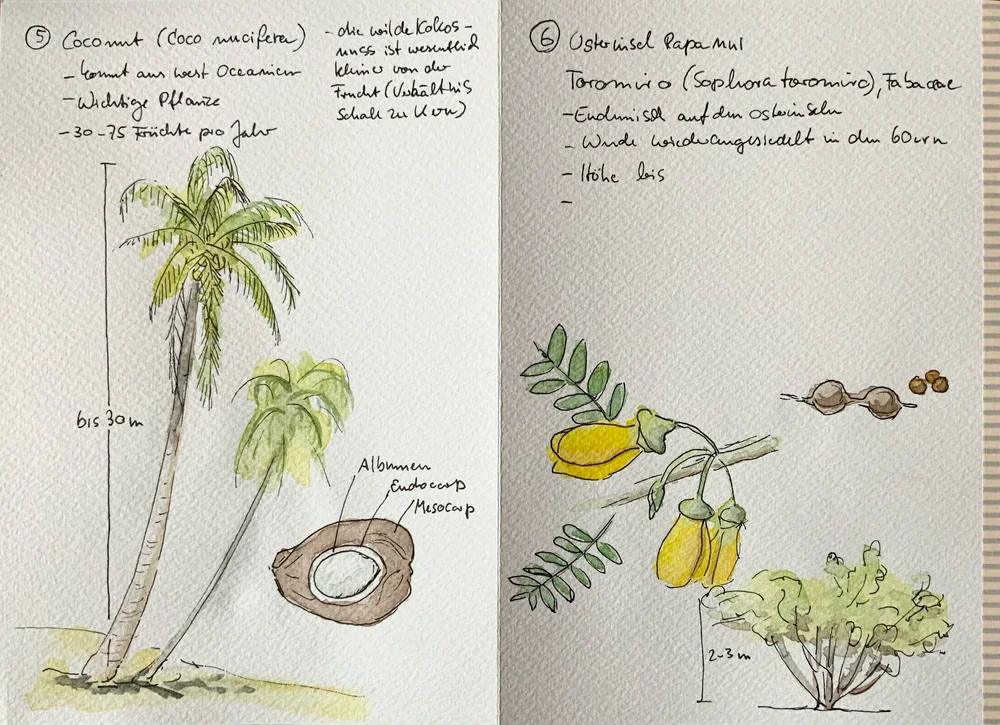 5 Coconut (Coco nucifera)
- kommt aus west Oceanien
- Wichtige Pflanze
- 30-75 Früchte pro Jahr
- die wilde Kokos-
nuss ist wesentlich
kleiner von der
Frucht (Verhältnis
Schale zu Kern)
bis 30 m
Albumen
Endocarp
Mesocarp
6 Osterinsel Rapa Nui
Toromiro (Sophora toromiro), Fabaceae
- Endemisch auf den Osterinseln
- Wurde wiederangesiedelt in den 60ern
- Höhe bis
-
2-3 m